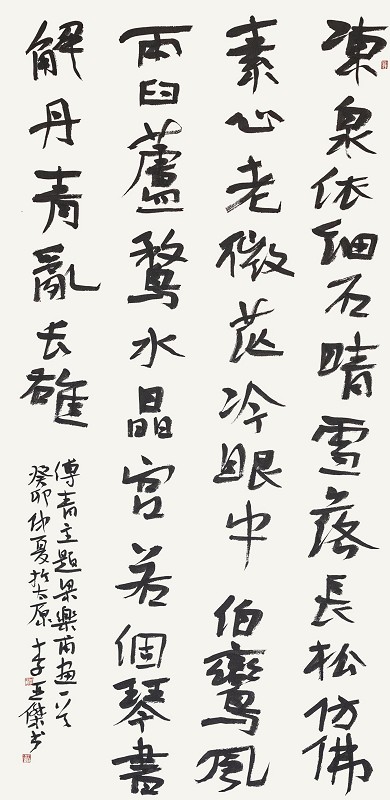 凍泉依細石晴雪落長松仿佛
素心老微茫冷眼中伯鸞風
雨臼蘆鶩水晶宮若個琴書
解丹青亂长雄
傅青主題梁樂甫畫一首
癸卯仲夏於太原李傑书